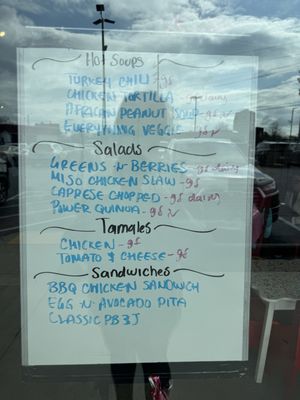 Hot Soups
TURKEY CHILI - gf
CHICKEN TORTILLA - gf dairy
AFRICAN PEANUT SOUP - gf v
EVERYTHING VEGGIE gf v
Salads
GREENS -N- BERRIES - gf dairy
MISO CHICKEN SLAW - gf
CAPRESE CHOPPED - gf dairy
POWER QUINOA - gf v
Tamales
CHICKEN - gf
TOMATO & CHEESE - gf
Sandwiches
BBQ CHICKEN SANDWICH
EGG -N- AVOCADO PITA
CLASSIC PB & J